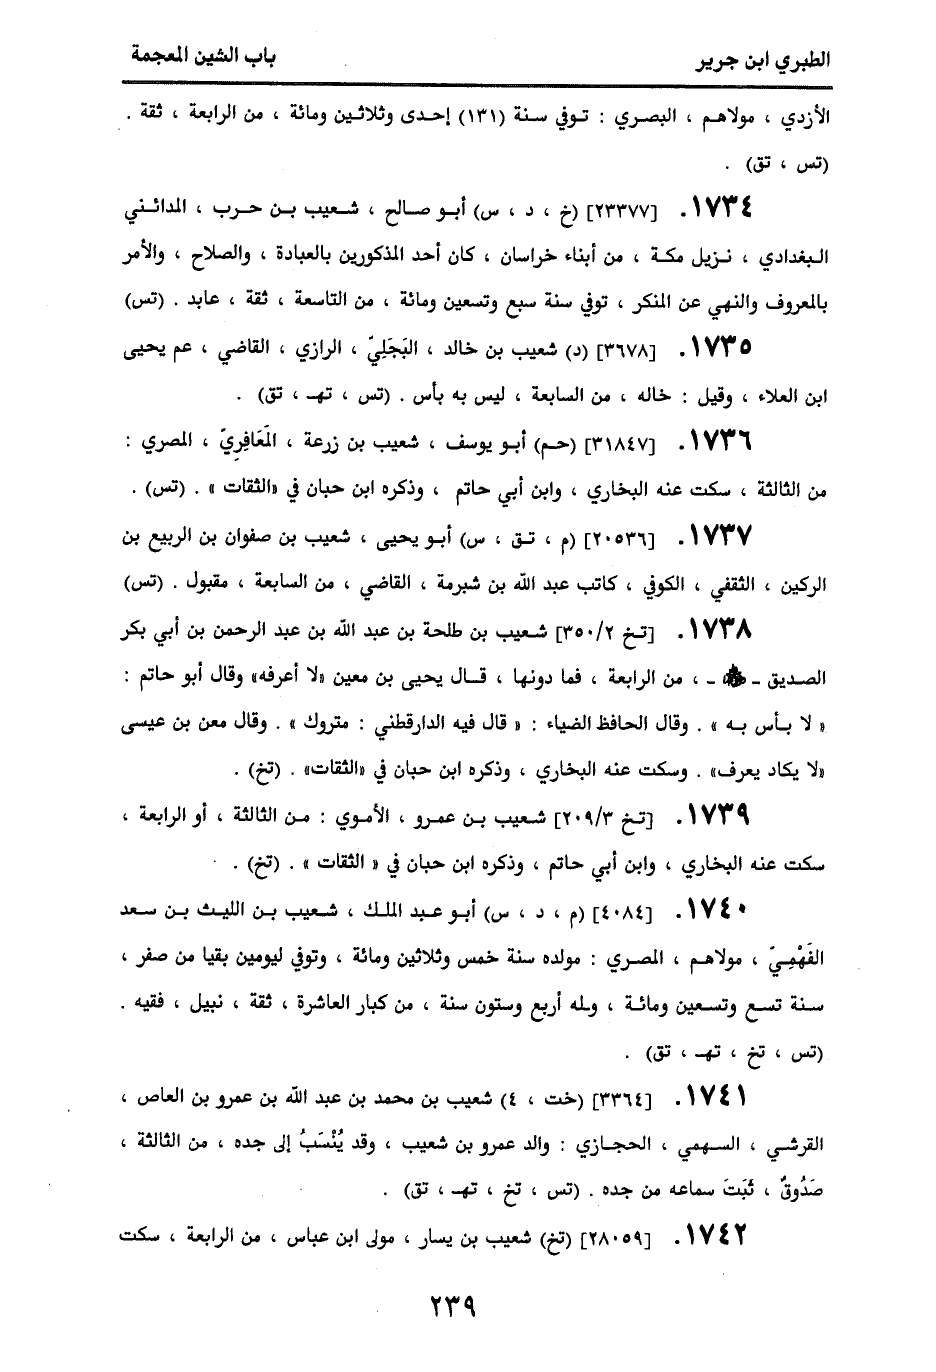 الطبري ابن جرير
باب الشين المعجمة
الأزدي ، مولاهم ، البصري : توفي سنة (١٣١) إحدى وثلاثين ومائة ، من الرابعة ، ثقة .
(تس ، تق) .
١٧٣٤. [٢٣٣٧٧] (خ ، د ، س) أبو صالح ، شعيب بن حرب ، المدائني
البغدادي ، نزيل مكة ، من أبناء خراسان ، كان أحد المذكورين بالعبادة ، والصلاح ، والأمر
بالمعروف والنهي عن المنكر ، توفي سنة سبع وتسعين ومائة ، من التاسعة ، ثقة ، عابد . (تس)
١٧٣٥. [٣٦٧٨] (د) شعيب بن خالد ، البَجَلِيّ ، الرازي ، القاضي ، عم يحيى
ابن العلاء ، وقيل : خاله ، من السابعة ، ليس به بأس . (تس ، تهـ ، تق) .
١٧٣٦. [٣١٨٤٧] (حم) أبو يوسف ، شعيب بن زرعة ، المَعَافِرِيّ ، المصري :
من الثالثة ، سكت عنه البخاري ، وابن أبي حاتم ، وذكره ابن حبان في «الثقات » . (تس) .
١٧٣٧. [٢٠٥٣٦] (م ، تق ، س) أبو يحيى ، شعيب بن صفوان بن الربيع بن
الركين ، الثقفي ، الكوفي ، كاتب عبد الله بن شبرمة ، القاضي ، من السابعة ، مقبول . (تس)
١٧٣٨. [تخ ٣٥٠/٢] شعيب بن طلحة بن عبد الله بن عبد الرحمن بن أبي بكر
الصديق - ﷺ - ، من الرابعة ، فما دونها ، قال يحيى بن معين «لا أعرفه» وقال أبو حاتم :
« لا بأس به » . وقال الحافظ الضياء : « قال فيه الدارقطني : متروك » . وقال معن بن عيسى
«لا يكاد يعرف» . وسكت عنه البخاري ، وذكره ابن حبان في «الثقات» . (تخ) .
١٧٣٩. [تخ ٢٠٩/٣] شعيب بن عمرو ، الأموي : من الثالثة ، أو الرابعة ،
سكت عنه البخاري ، وابن أبي حاتم ، وذكره ابن حبان في « الثقات » . (تخ) .
١٧٤٠. [٤٠٨٤] (م ، د ، س) أبو عبد الملك ، شعيب بن الليث بن سعد
الفَهْمِيّ ، مولاهم ، المصري : مولده سنة خمس وثلاثين ومائة ، وتوفي ليومين بقيا من صفر ،
سنة تسع وتسعين ومائة ، وله أربع وستون سنة ، من كبار العاشرة ، ثقة ، نبيل ، فقيه .
(تس ، تخ ، تهـ ، تق) .
١٧٤١. [٣٣٦٤] (خت ، ٤) شعيب بن محمد بن عبد الله بن عمرو بن العاص ،
القرشي ، السهمي ، الحجازي : والد عمرو بن شعيب ، وقد يُنْسَبُ إلى جده ، من الثالثة ،
صَدُوقٌ ، ثَبَتَ سماعه من جده . (تس ، تخ ، تهـ ، تق) .
١٧٤٢. [٢٨٠٥٩] (تخ) شعيب بن يسار ، مولى ابن عباس ، من الرابعة ، سكت
٢٣٩